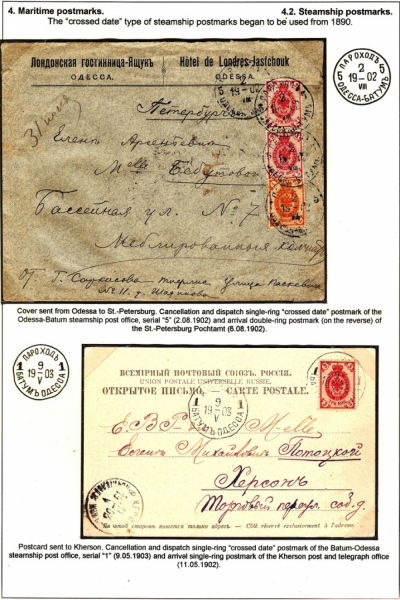 4. Maritime postmarks. 4.2. Steamship postmarks.
The "crossed date" type of steamship postmarks began to be used from 1890.
Лондонская гостинница-Ящукъ
ОДЕССА.
Hôtel de Londres-Jastchouk
ODESSA.
ПАРОХОДЪ
2
5 19-02 5
VIII
ОДЕССА-БАТУМЪ
Петербургъ
Бассейная ул. № 7
Меблированныя комнаты
Cover sent from Odessa to St.-Petersburg. Cancellation and dispatch single-ring "crossed date" postmark of the
Odessa-Batum steamship post office, serial "5" (2.08.1902) and arrival double-ring postmark (on the reverse) of
the St.-Petersburg Pochtamt (6.08.1902).
ПАРОХОДЪ
9
1 19-03 1
V
БАТУМЪ-ОДЕССА
ВСЕМІРНЫЙ ПОЧТОВЫЙ СОЮЗЪ. РОССІЯ.
UNION POSTALE UNIVERSELLE RUSSIE.
ОТКРЫТОЕ ПИСЬМО. — CARTE POSTALE.
ПАРОХОДЪ
9
1 19-03 1
V
БАТУМЪ-ОДЕССА
M-elle
Потоцкой
Херсонъ
На этой сторонѣ пишется только адресъ. — Côté réservé exclusivement à l'adresse.
Postcard sent to Kherson. Cancellation and dispatch single-ring "crossed date" postmark of the Batum-Odessa
steamship post office, serial "1" (9.05.1903) and arrival single-ring postmark of the Kherson post and telegraph office
(11.05.1902).